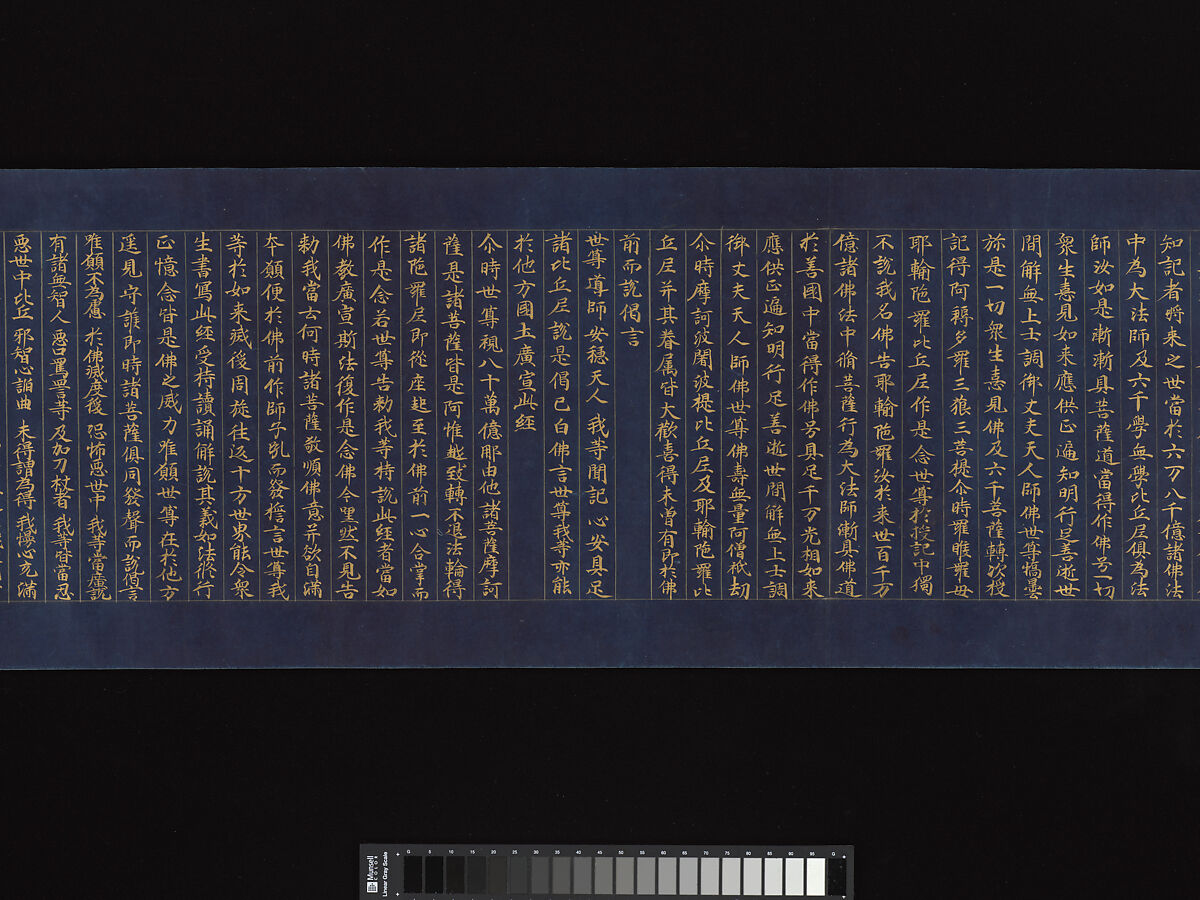 知記者將来之世當於六万八千億諸佛法
中為大法師及六千學無學比丘尼俱為法
師汝如是漸漸具菩薩道當得作佛号一切
衆生憙見如来應供正遍知明行足善逝世
間解無上士調御丈夫天人師佛世尊憍曇
弥是一切衆生憙見佛及六千菩薩轉次授
記得阿耨多羅三藐三菩提尒時羅睺羅母
耶輸陁羅比丘尼作是念世尊於授記中獨
不說我名佛告耶輸陁羅汝於来世百千万
億諸佛法中脩菩薩行為大法師漸具佛道
於善國中當得作佛号具足千万光相如来
應供正遍知明行足善逝世間解無上士調
御丈夫天人師佛世尊佛壽無量阿僧祇劫
尒時摩訶波闍波提比丘尼及耶輸陁羅比
丘尼并其眷属皆大歡喜得未曾有即於佛
前而說偈言
世尊導師 安穩天人 我等聞記 心安具足
諸比丘尼說是偈已白佛言世尊我等亦能
於他方國土廣宣此經
尒時世尊視八十萬億那由他諸菩薩摩訶
薩是諸菩薩皆是阿惟越致轉不退法輪得
諸陁羅尼即從座起至於佛前一心合掌而
作是念若世尊告勑我等持說此經者當如
佛教廣宣斯法復作是念佛今嘿然不見告
勑我當云何時諸菩薩敬順佛意并欲自滿
本願便於佛前作師子吼而發誓言世尊我
等於如来滅後周旋往返十方世界能令衆
生書寫此經受持讀誦解說其義如法脩行
正憶念皆是佛之威力唯願世尊在於他方
遥見守護即時諸菩薩俱同發聲而說偈言
唯願不為慮 於佛滅度後 恐怖惡世中 我等當廣說
有諸無智人 惡口罵詈等 及加刀杖者 我等皆當忍
惡世中比丘 邪智心諂曲 未得謂為得 我慢心充滿
Munsell COLOR
Linear Gray Scale
G 5 10 15 20 25 30 35 40 45 50 55 60 65 70 75 80 85 90 95 G